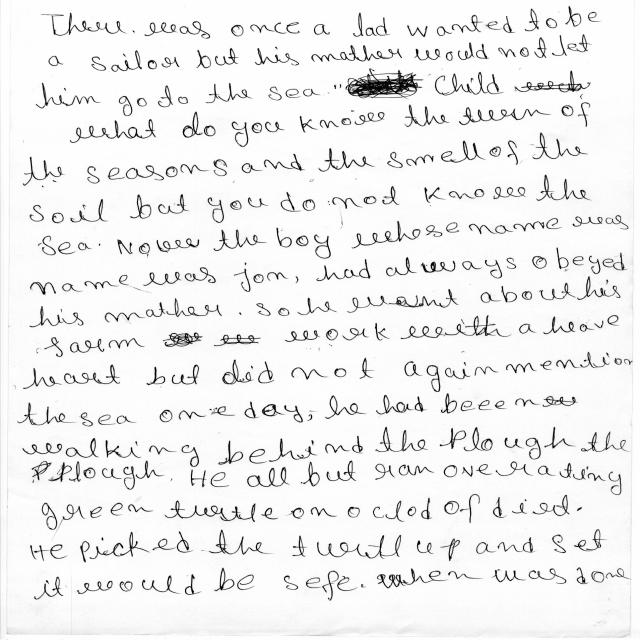 There was once a lad wanted to be
a sailor but his mather would not let
him go to the sea. " Child
what do you know the turn of
the seasons and the smell of the
soil but you do not know the
Sea. Now the boy whose name was
name was jon, had always obeyed
his mather. so he want about his
farm work with a heave
heart but did not again mention
the sea one day, he had beeen
walking behind the Plough the
Plough. He all but ran over a ting
green turtle on a clod of dird.
He picked the turtl up and set
it would be sefe. when was done